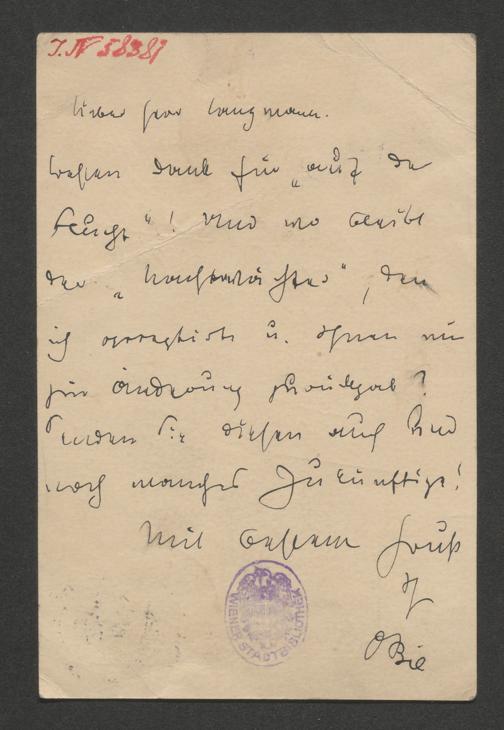 I.N 58381
Lieber Herr Langmann.
besten Dank für „auf der
Flucht"! Und wo bleibt
der „Nachtwächter", den
ich acceptirte u. Ihnen nur
zur Änderung zurückgab?
Senden Sie diesen auch und
noch manches Zukünftige!
Mit bestem Gruß
Ihr
OBie
WIENER STADTBIBLIOTHEK